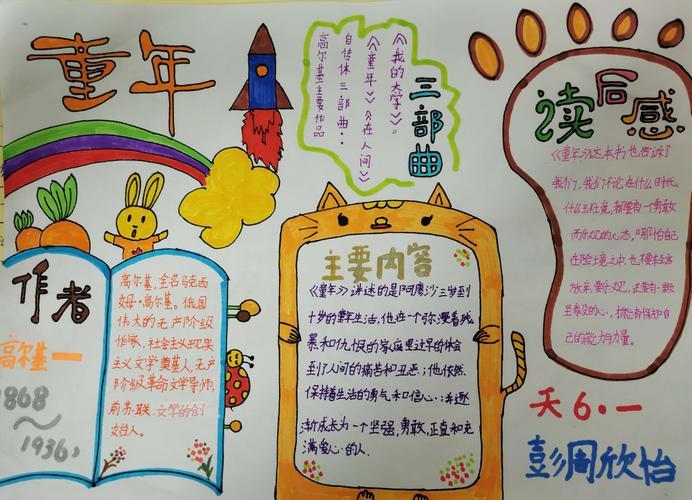 童年
三部曲
高尔基主要作品
自传体三部曲：
《童年》《在人间》
《我的大学》。
读后感
《童年》这本书，也告诉了
我们，我们不论在什么时代，
什么环境，都要有一个勇敢
而乐观的心态。哪怕自己
在险境之中，也不要轻言
放弃，要乐观，还要有一颗
至善的心，相信有保护自
己的能力与力量。
作者
高尔基一
1868
～
1936
高尔基，全名马克西
姆·高尔基。俄国
伟大的无产阶级
作家，社会主义现实
主义文学奠基人，无产
阶级革命文学导师，
前苏联文学的创
始人。
主要内容
《童年》讲述的是阿廖沙三岁到
十岁的童年生活，他在一个弥漫着残
暴和仇恨的家庭里过早的体会
到了人间的痛苦和丑恶；他依然
保持着生活的勇气和信心；并逐
渐成长为一个坚强，勇敢，正直和充
满爱心的人。
天6.一
彭周欣怡